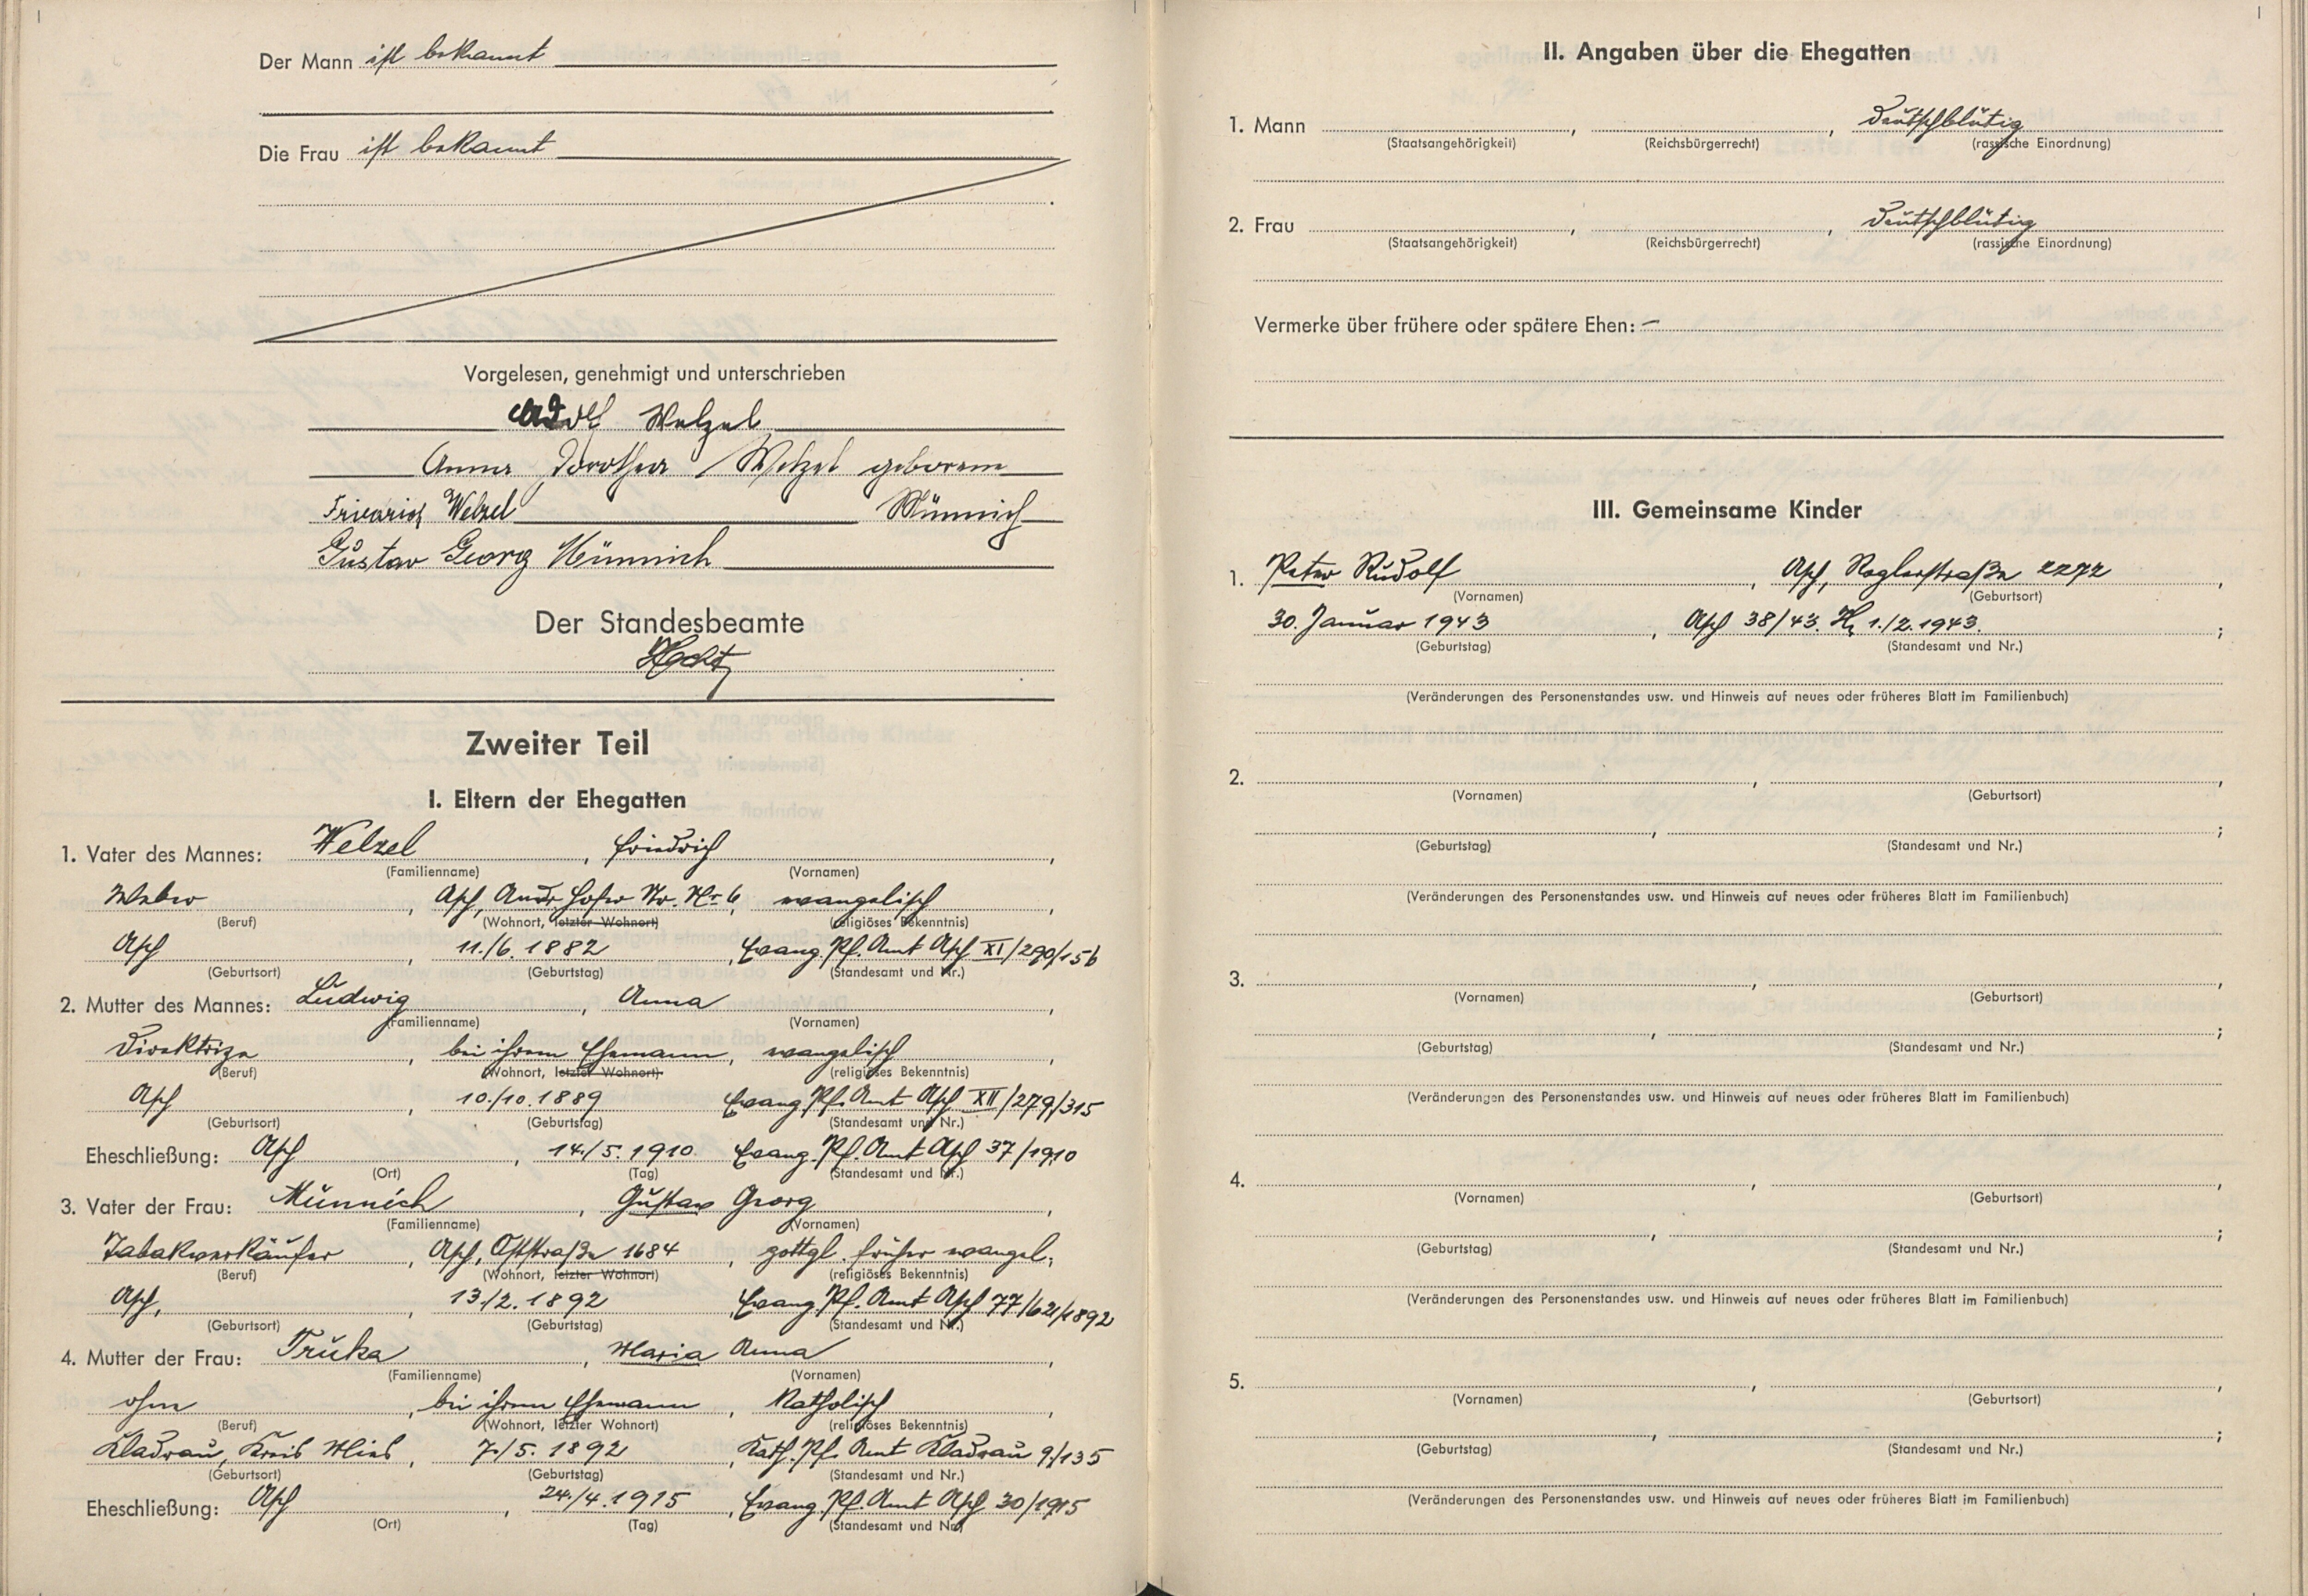 Der Mann ist bekannt
Die Frau ist bekannt
Vorgelesen, genehmigt und unterschrieben
Adolf Welzel
Anna Dorothea Welzel geborene
Friedrich Welzel Münnich
Gustav Georg Münnich
Der Standesbeamte
Zweiter Teil
I. Eltern der Ehegatten
1. Vater des Mannes: Welzel, Friedrich,
(Familienname) (Vornamen)
Weber, Asch, Andr. Hofer Str. Nr. 6, evangelisch,
(Beruf) (Wohnort, letzter Wohnort) (religiöses Bekenntnis)
Asch, 11./6.1882, Evang. Pf. Amt Asch XI/290/156
(Geburtsort) (Geburtstag) (Standesamt und Nr.)
2. Mutter des Mannes: Ludwig, Anna,
(Familienname) (Vornamen)
Direktrize, bei ihrem Ehemann, evangelisch,
(Beruf) (Wohnort, letzter Wohnort) (religiöses Bekenntnis)
Asch, 10./10.1889 Evang. Pf. Amt Asch XII/279/315
(Geburtsort) (Geburtstag) (Standesamt und Nr.)
Eheschließung: Asch, 14./5.1910 Evang. Pf. Amt Asch 37/1910
(Ort) (Tag) (Standesamt und Nr.)
3. Vater der Frau: Münnich, Gustav Georg,
(Familienname) (Vornamen)
Tabakverkäufer, Asch, Oststraße 1684, gottgl. früher evangel.,
(Beruf) (Wohnort, letzter Wohnort) (religiöses Bekenntnis)
Asch, 13./2.1892, Evang. Pf. Amt Asch 77/621/1892
(Geburtsort) (Geburtstag) (Standesamt und Nr.)
4. Mutter der Frau: Truka, Maria Anna,
(Familienname) (Vornamen)
ohne, bei ihrem Ehemann, katholisch,
(Beruf) (Wohnort, letzter Wohnort) (religiöses Bekenntnis)
Kladrau, Kreis Mies, 7./5.1892, Kath. Pf. Amt Kladrau 9/135
(Geburtsort) (Geburtstag) (Standesamt und Nr.)
Eheschließung: Asch, 24./4.1915, Evang. Pf. Amt Asch 30/1915
(Ort) (Tag) (Standesamt und Nr.)
II. Angaben über die Ehegatten
1. Mann , , deutschblütig
(Staatsangehörigkeit) (Reichsbürgerrecht) (rassische Einordnung)
2. Frau , , deutschblütig
(Staatsangehörigkeit) (Reichsbürgerrecht) (rassische Einordnung)
Vermerke über frühere oder spätere Ehen: —
III. Gemeinsame Kinder
1. Peter Rudolf, Asch, Roglerstraße 2272,
(Vornamen) (Geburtsort)
30. Januar 1943, Asch 38/43. 1./2.1943.;
(Geburtstag) (Standesamt und Nr.)
(Veränderungen des Personenstandes usw. und Hinweis auf neues oder früheres Blatt im Familienbuch)
2. , ,
(Vornamen) (Geburtsort)
, ;
(Geburtstag) (Standesamt und Nr.)
(Veränderungen des Personenstandes usw. und Hinweis auf neues oder früheres Blatt im Familienbuch)
3. , ,
(Vornamen) (Geburtsort)
, ;
(Geburtstag) (Standesamt und Nr.)
(Veränderungen des Personenstandes usw. und Hinweis auf neues oder früheres Blatt im Familienbuch)
4. , ,
(Vornamen) (Geburtsort)
, ;
(Geburtstag) (Standesamt und Nr.)
(Veränderungen des Personenstandes usw. und Hinweis auf neues oder früheres Blatt im Familienbuch)
5. , ,
(Vornamen) (Geburtsort)
, ;
(Geburtstag) (Standesamt und Nr.)
(Veränderungen des Personenstandes usw. und Hinweis auf neues oder früheres Blatt im Familienbuch)